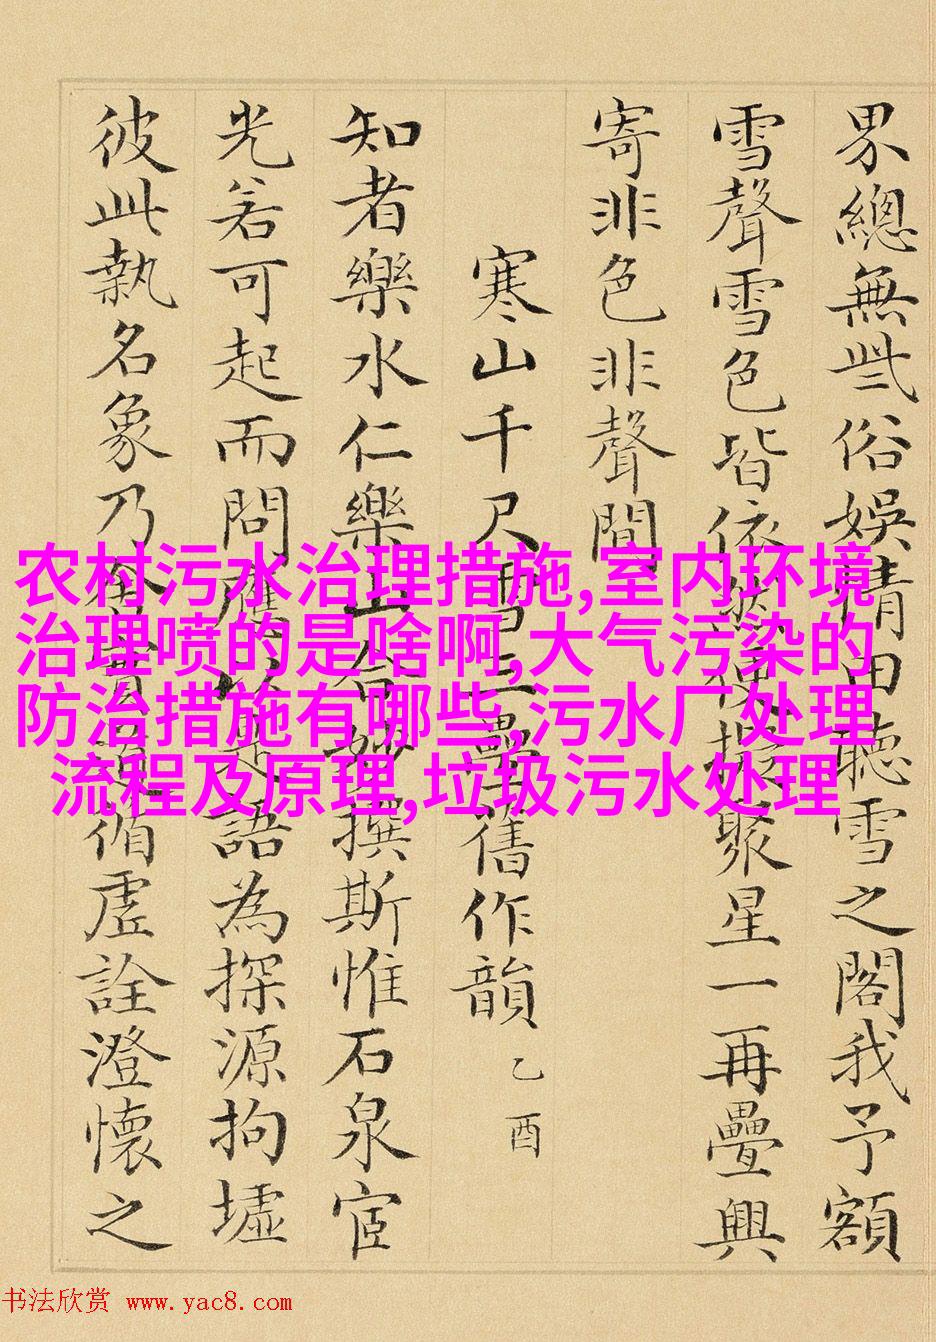 界總無些俗娛晴田聽雪之閣我予額
雪聲雪色皆依然便擬聚星一再疊興
寄非色非聲間
寒山千尺雪三疊舊作韻 乙酉
知者樂水仁樂山合妙撰斯惟石泉宦
光若可起而問應以是語為探源拘墟
彼此執名象乃
循虛詮澄懷之
农村污水治理措施,室内环境
治理喷的是啥啊,大气污染的
防治措施有哪些,污水厂处理
流程及原理,垃圾污水处理
书法欣赏 www.yac8.com